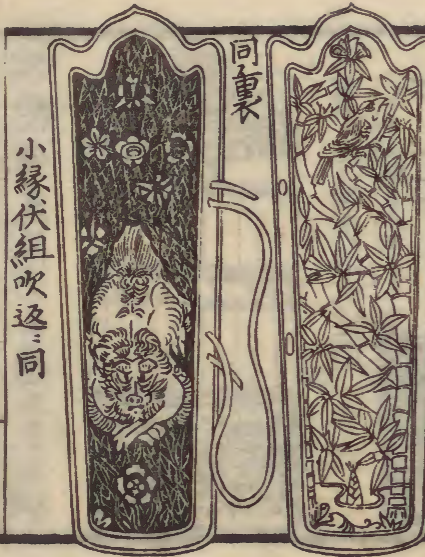 同裏
小縁伏組吹返ニ同